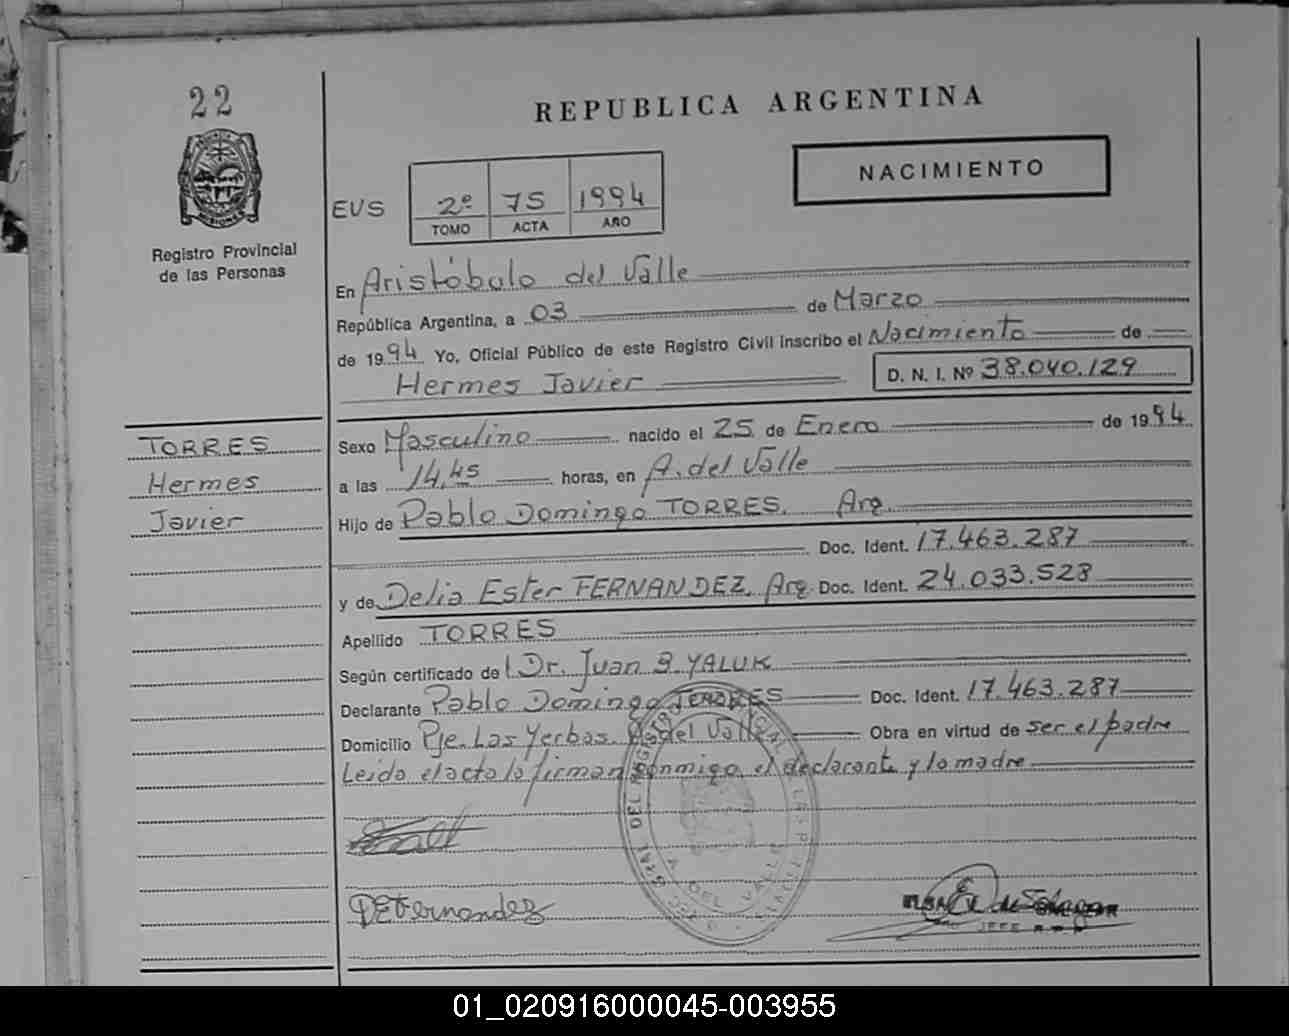 22
REPUBLICA ARGENTINA
NACIMIENTO
EVS 2º 75 1994
TOMO ACTA AÑO
Registro Provincial
de las Personas
En Aristóbulo del Valle
República Argentina, a 03 de Marzo
de 1994 Yo, Oficial Público de este Registro Civil inscribo el Nacimiento de
Hermes Javier D. N. I. Nº 38.040.129
TORRES
Hermes
Javier
Sexo Masculino nacido el 25 de Enero de 1994
a las 14,45 horas, en A. del Valle
Hijo de Pablo Domingo TORRES. Arg.
Doc. Ident. 17.463.287
y de Delia Ester FERNANDEZ. Arg. Doc. Ident. 24.033.528
Apellido TORRES
Según certificado de Dr. Juan B. YALUK
Declarante Pablo Domingo TORRES Doc. Ident. 17.463.287
Domicilio Pje. Las Yerbas. A. del Valle Obra en virtud de ser el padre
Leida el acta la firman conmigo el declarante y la madre
DEFernandez
A. DEL VALLE
JEFE R.P.P
01_020916000045-003955